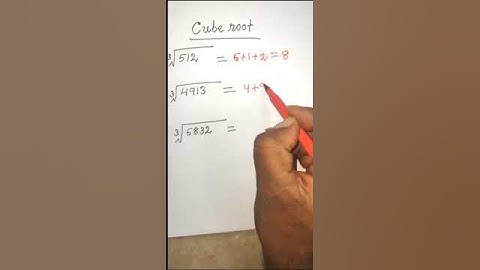 Cube root
∛512 = 5+1+2=8
∛4913 = 4+9
∛5832 =